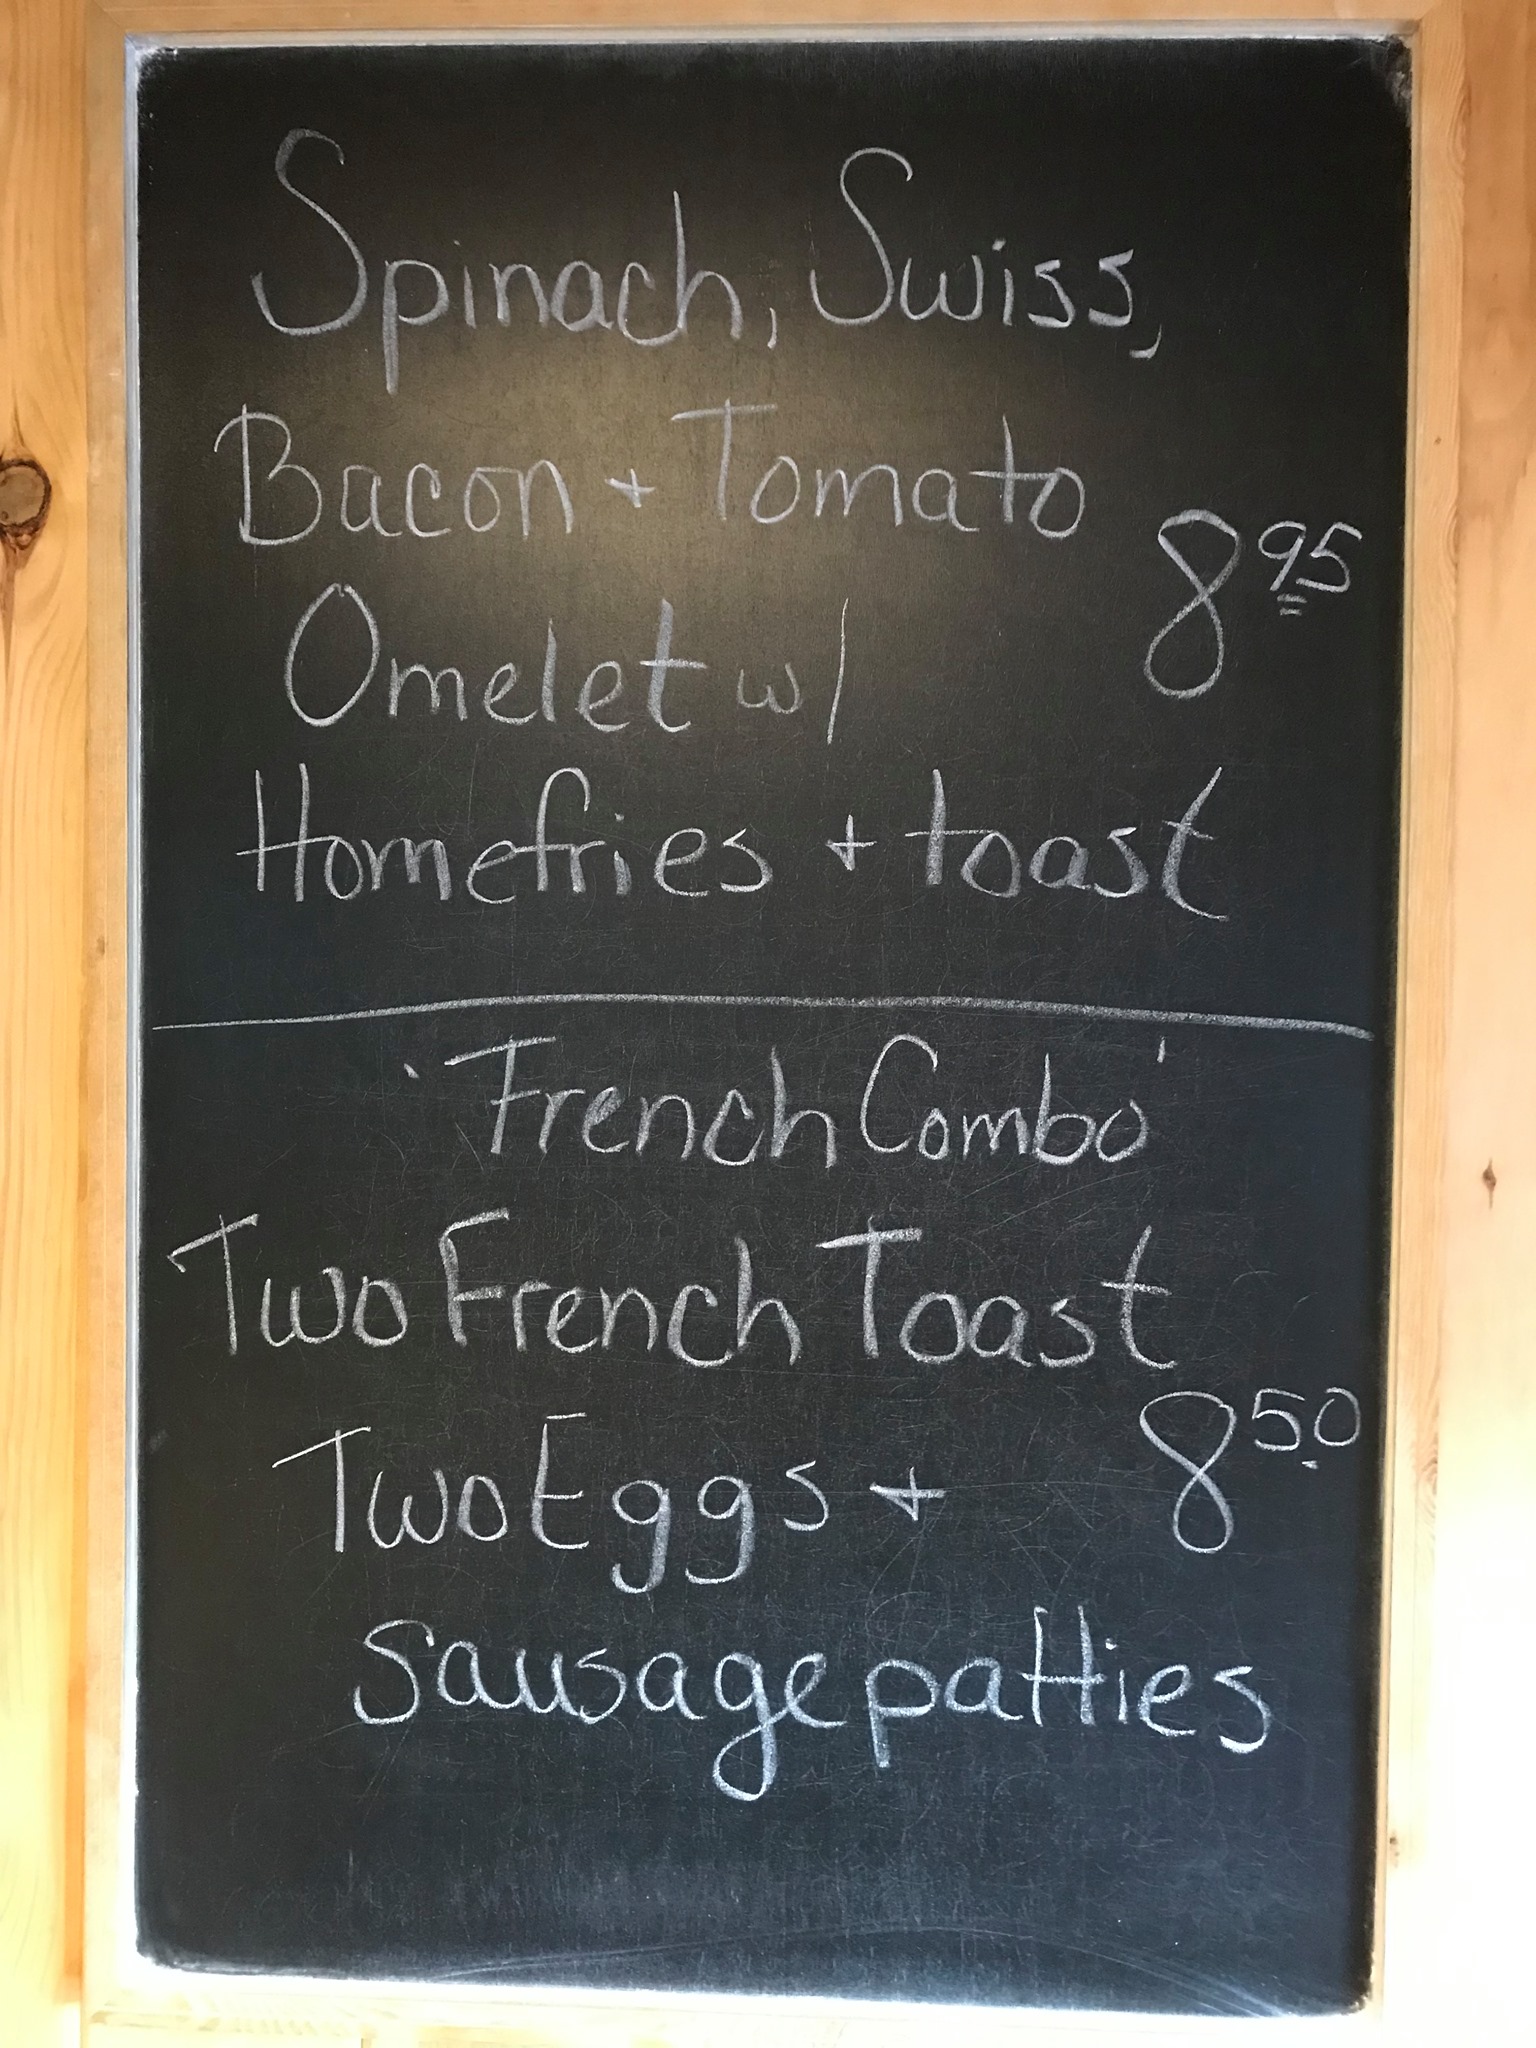 Spinach, Swiss,
Bacon + Tomato
8 95
Omelet w/
Homefries + toast
'French Combo'
Two French Toast
Two Eggs + 8 50
Sausage patties